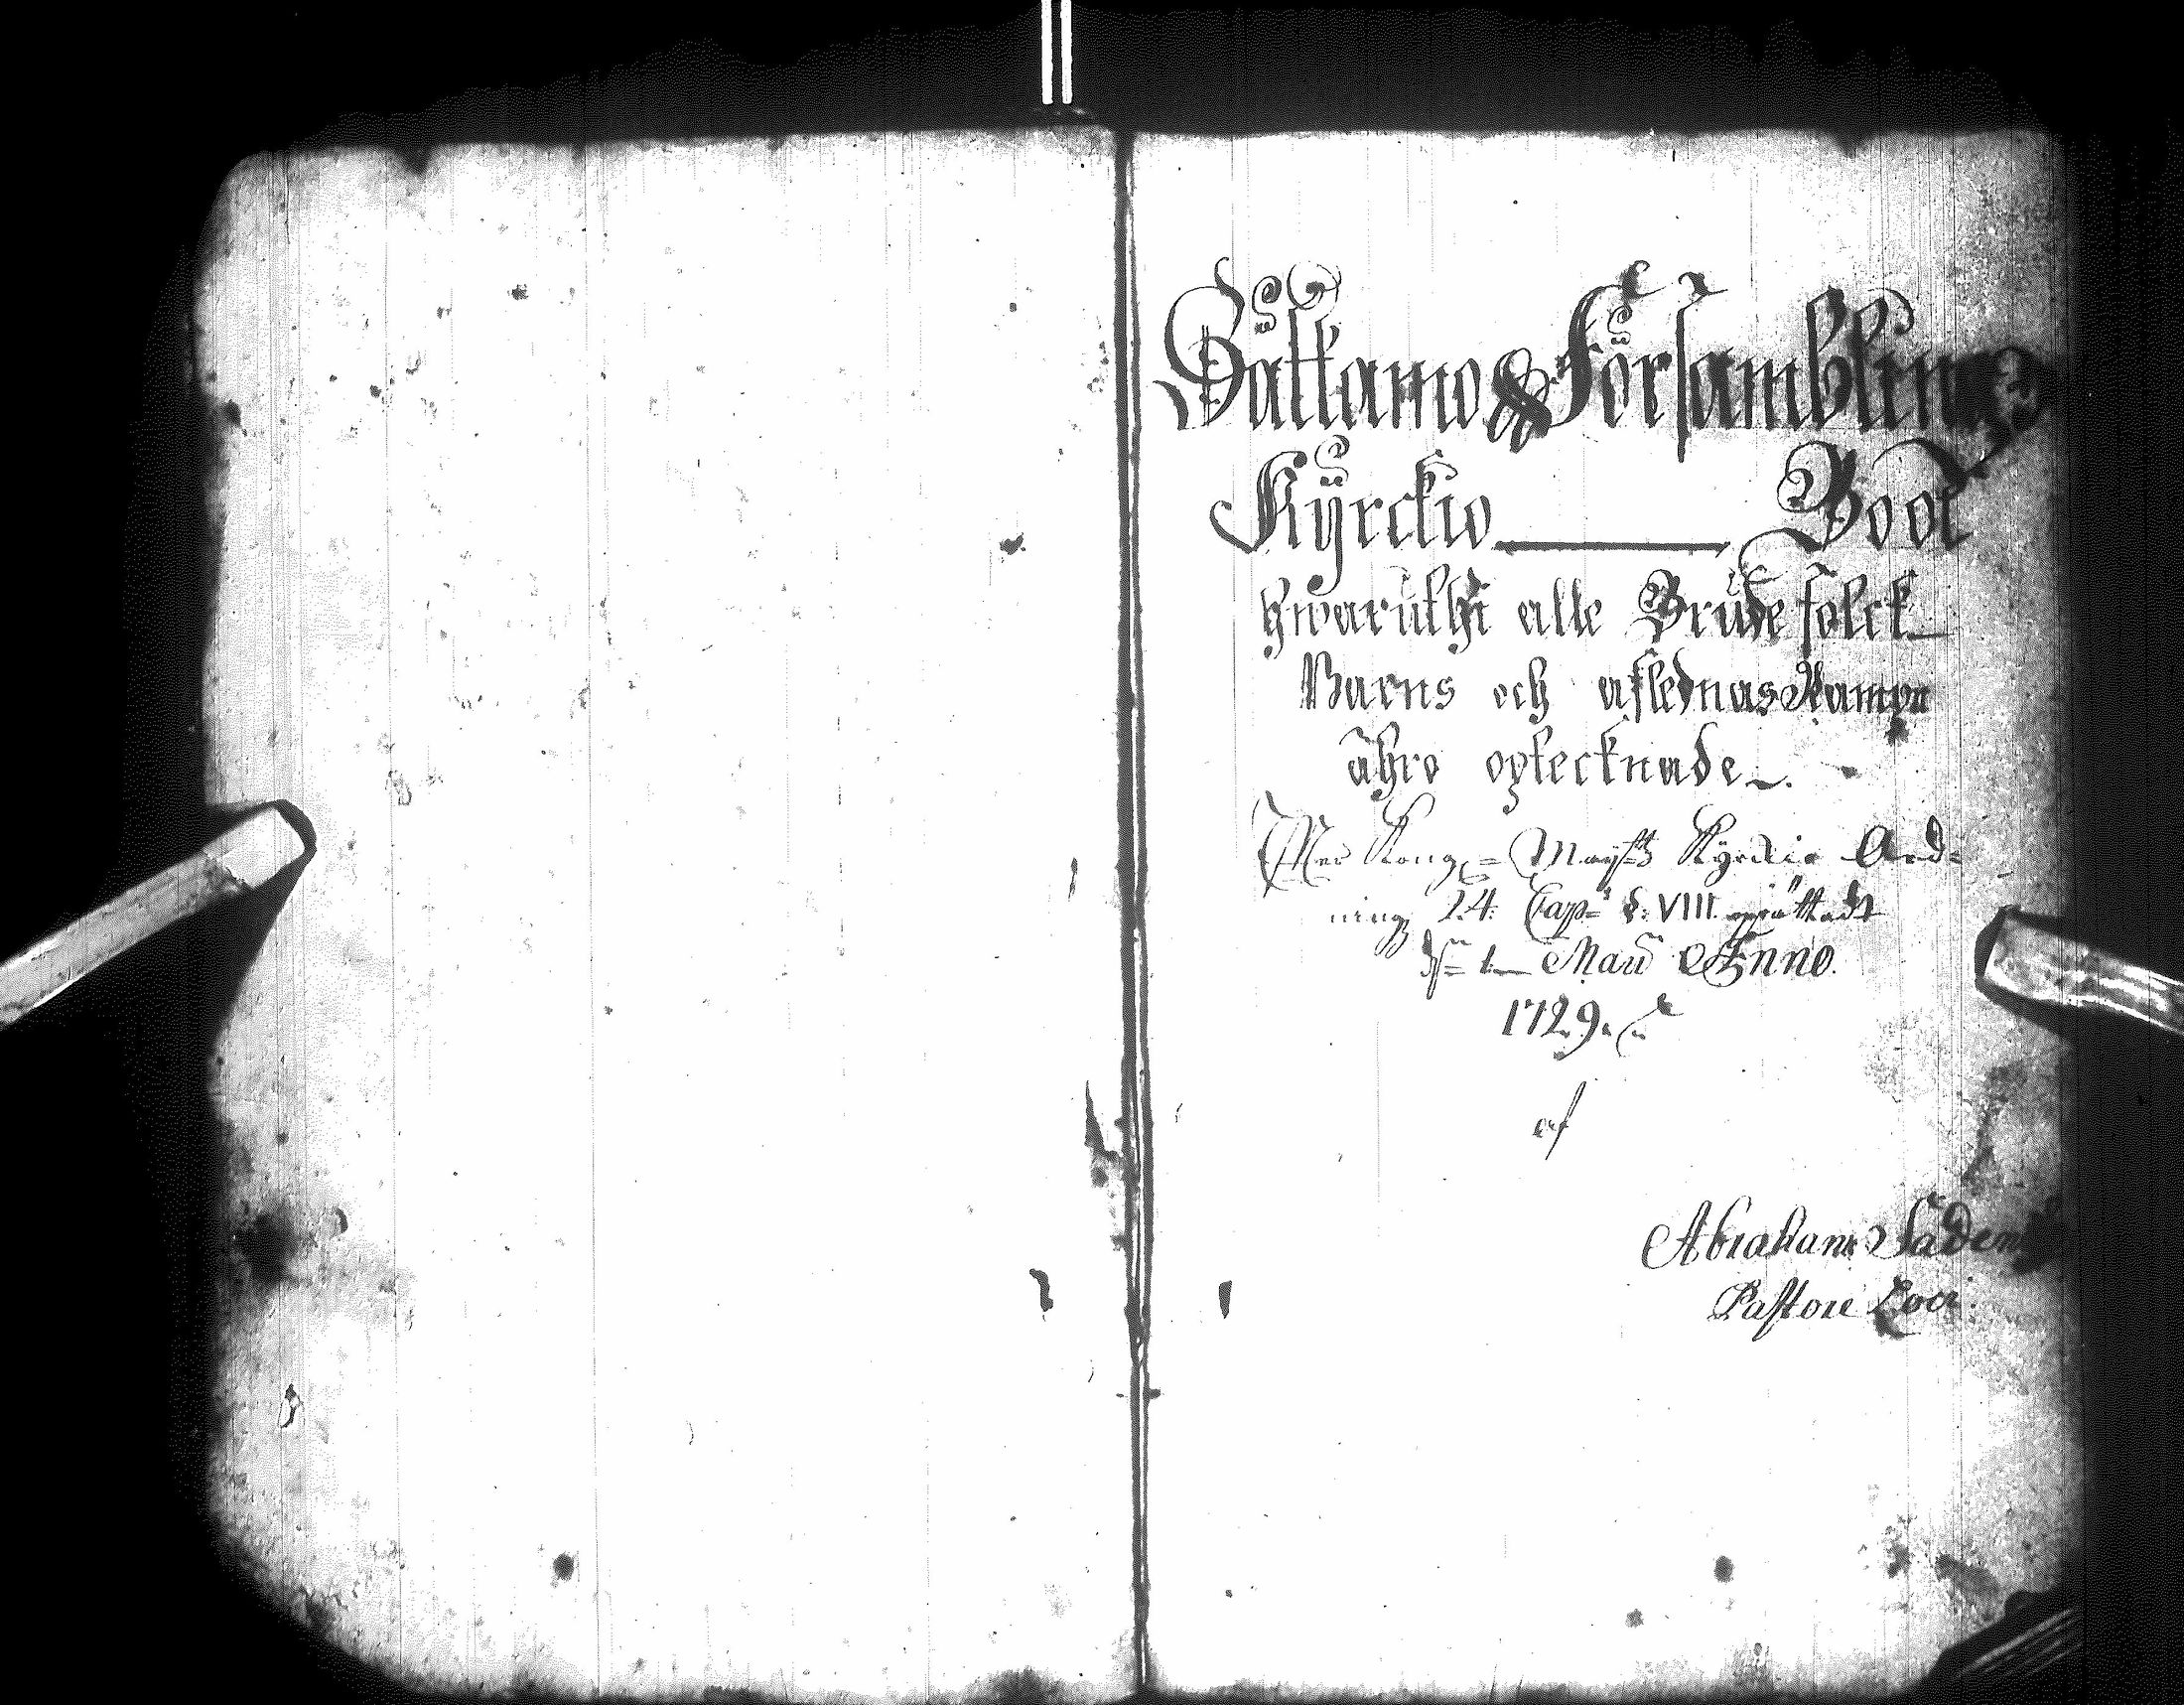 Såtkamo Församblings
Kÿrckio Book
hwaruthi alle Brudefolck
Barns och aflednas Nampn
ähro optecknade.
Kong Mayttz Kyrckio Ord=
ningz 24. Cap: §. VIII. opprättadt
d. 1. Maii Anno.
1729.
af
Abraham
Pastore Loci.